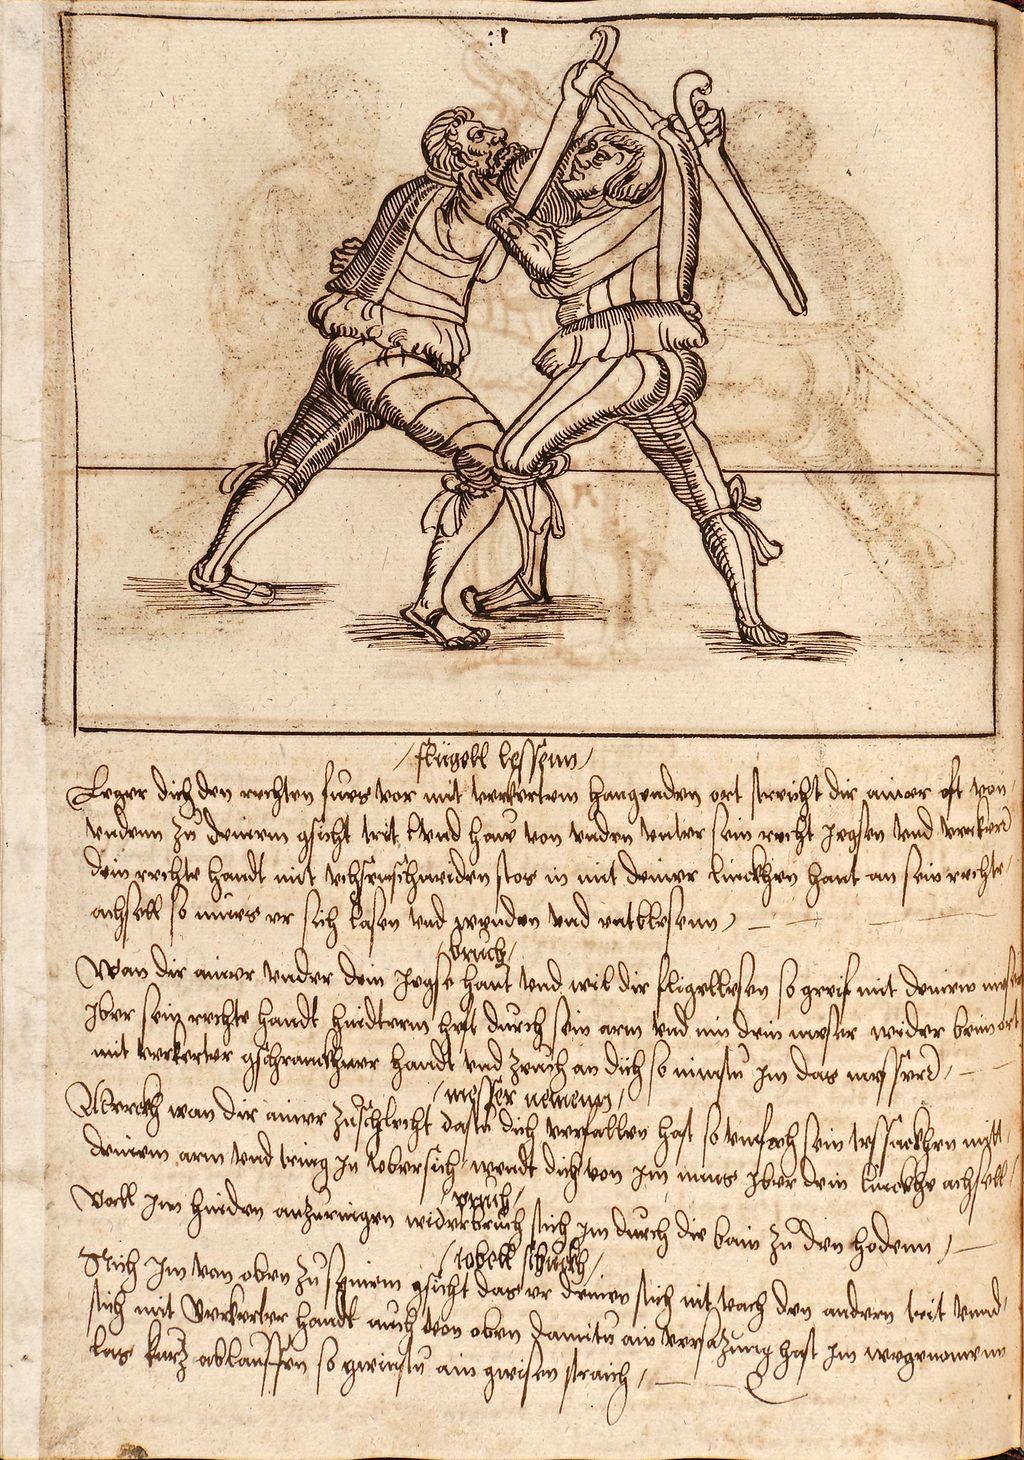 / flügell lessenn /
Leger dich den rechten fues vor mit verkertem hangenden ort streicht dir ainer oft von
undenn zu deinem gsicht trit und haw von unden unter sein recht Iegsen und verker
dein rechte handt mit schneiden stos in mit deiner linckhen hant an sein rechte
achsell so mues er sich lasen und wenden und entblesenn /
/ bruch /
Wan dir ainer under dein Iegse haut und wil dir fligellesen so greif mit deinem meser
Iber sein rechte handt hindterm heft durch sein arm und nim dein meser wider beim ort
mit verkerter gschranckhter handt und zeuch an dich so nimstu im das messer /
/ messer nemenn /
Merckh wan dir ainer zuschlecht dastu dich verfallen hast so umfach sein mitt
deinem arm und bring In Ubersich wendt dich von im mues Iber dein linckhe achsell
woll im hinden anzuringen widerbruch stich im durch die bain zu den hodenn /
/ pruch /
/ stuckh /
Stich Im von oben zu seinem gsicht das er deinen stich nit nach den andern trit unnd
stich mit verkerter handt auch von oben damitu ain versazung hast im wegenomenn
las kurz ablauffen so gwinstu ain gwisen straich /